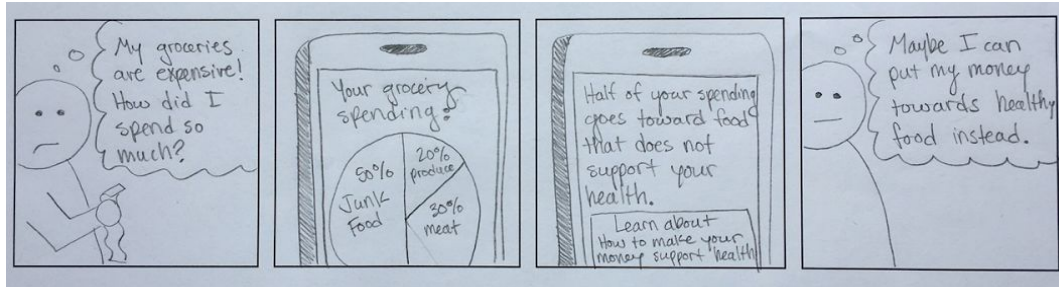 My groceries
are expensive!
How did I
spend so
much?
Your grocery
spending:
50%
Junk
Food
20%
produce
30%
meat
Half of your spending
goes toward food
that does not
support your
health.
Learn about
How to make your
money support health
Maybe I can
put my money
towards healthy
food instead.